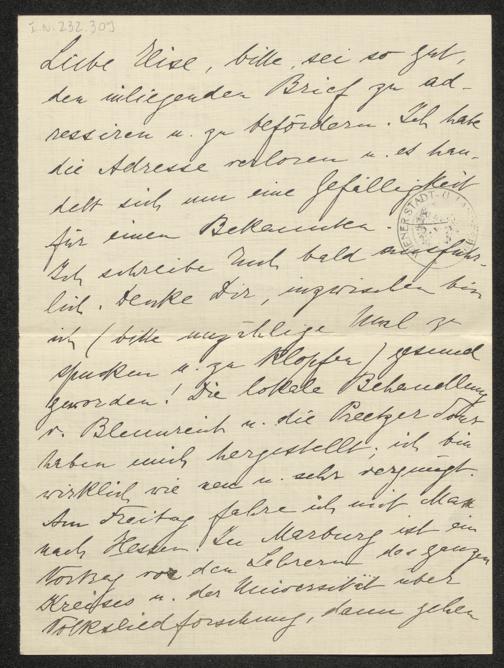 I.N. 232.309
Liebe Elise, bitte, sei so gut,
den inliegenden Brief zu ad-
ressiren u. zu befördern. Ich habe
die Adresse verloren u. es han-
delt sich um eine Gefälligkeit
für einen Bekannten.
Ich schreibe Euch bald ausführ-
lich. Denke Dir, inzwischen bin
ich (bitte unzählige Mal zu
spucken u. zu klopfen) gesund
geworden! Die lokale Behandlung
v. Blumreich u. die Preetzer Tour
haben mich hergestellt; ich bin
wirklich wie neu u. sehr vergnügt.
Am Freitag fahre ich mit Max
nach Hessen. In Marburg ist ein
Vortrag vor den Lehrern des ganzen
Kreises u. der Universität über
Volksliedforschung, dann gehen
WIENER STADT